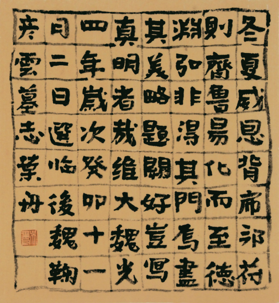 冬夏威恩背席符
則齊魯易化而至德
淵弘非得其門焉盡
其美略題關好豈寫
真明者裁維大魏光
四年歲次癸卯十一
月二日選臨後魏鞠
彥雲墓志葉丹